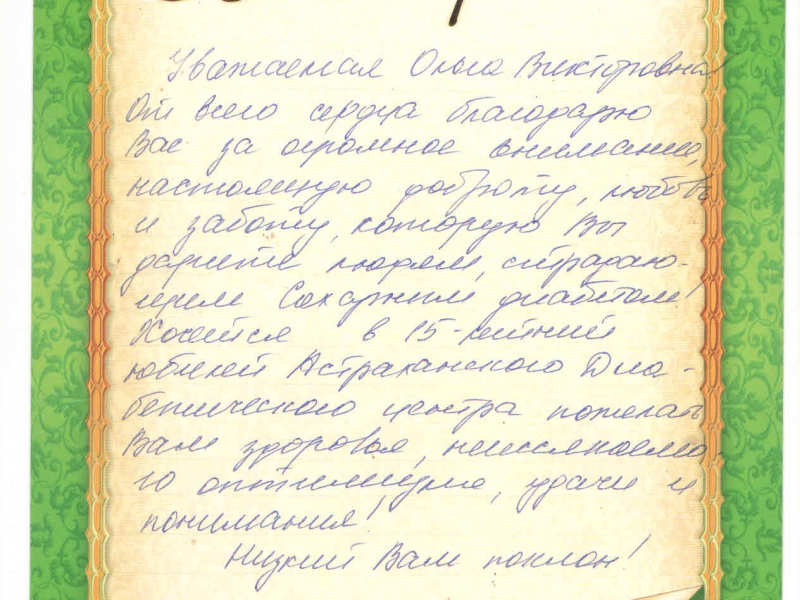 Уважаемая Ольга Викторовна!
От всего сердца благодарю
Вас за огромное внимание,
настоящую доброту, любовь
и заботу, которую Вы
дарите людям, страдаю-
щем Сахарным диабетом!
Хочется в 15-летний
юбилей Астраханского Диа-
бетического центра пожелать
Вам здоровья, неиссякаемо-
го оптимизма, удачи и
понимания!
Низкий Вам поклон!